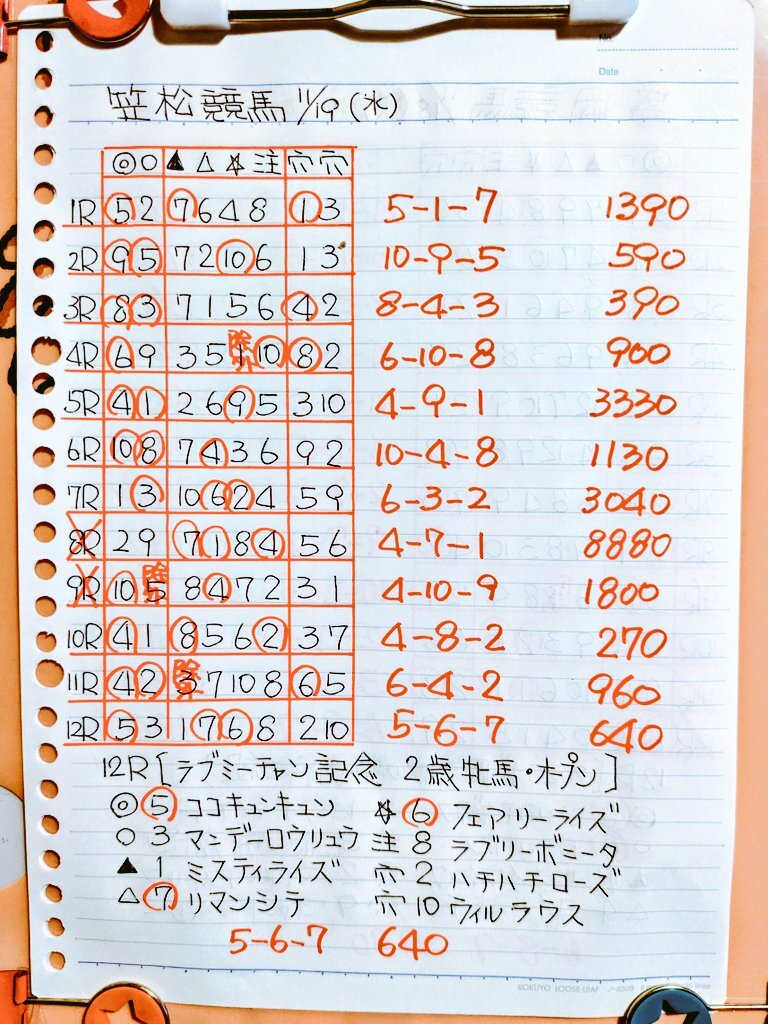 No.
Date
笠松競馬 11/19(水)
◎ ○ ▲ △ ☆ 注 穴 穴
1R 5 2 7 6 4 8 1 3 5-1-7 1390
2R 9 5 7 2 10 6 1 3 10-9-5 590
3R 8 3 7 1 5 6 4 2 8-4-3 390
4R 6 9 3 5 1 除 10 8 2 6-10-8 900
5R 4 1 2 6 9 5 3 10 4-9-1 3330
6R 10 8 7 4 3 6 9 2 10-4-8 1130
7R 1 3 10 6 2 4 5 9 6-3-2 3040
8R 2 9 7 1 8 4 5 6 4-7-1 8880
9R 10 5 除 8 4 7 2 3 1 4-10-9 1800
10R 4 1 8 5 6 2 3 7 4-8-2 270
11R 4 2 3 除 7 10 8 6 5 6-4-2 960
12R 5 3 1 7 6 8 2 10 5-6-7 640
12R[ラブミーチャン記念 2歳牝馬・オープン]
◎ 5 ココキュンキュン ☆ 6 フェアリーライズ
○ 3 マンデーロウリュウ 注 8 ラブリーボニータ
▲ 1 ミスティライズ 穴 2 ハチハチローズ
△ 7 リマンシテ 穴 10 ウィルラウス
5-6-7 640
KOKUYO LOOSE-LEAF